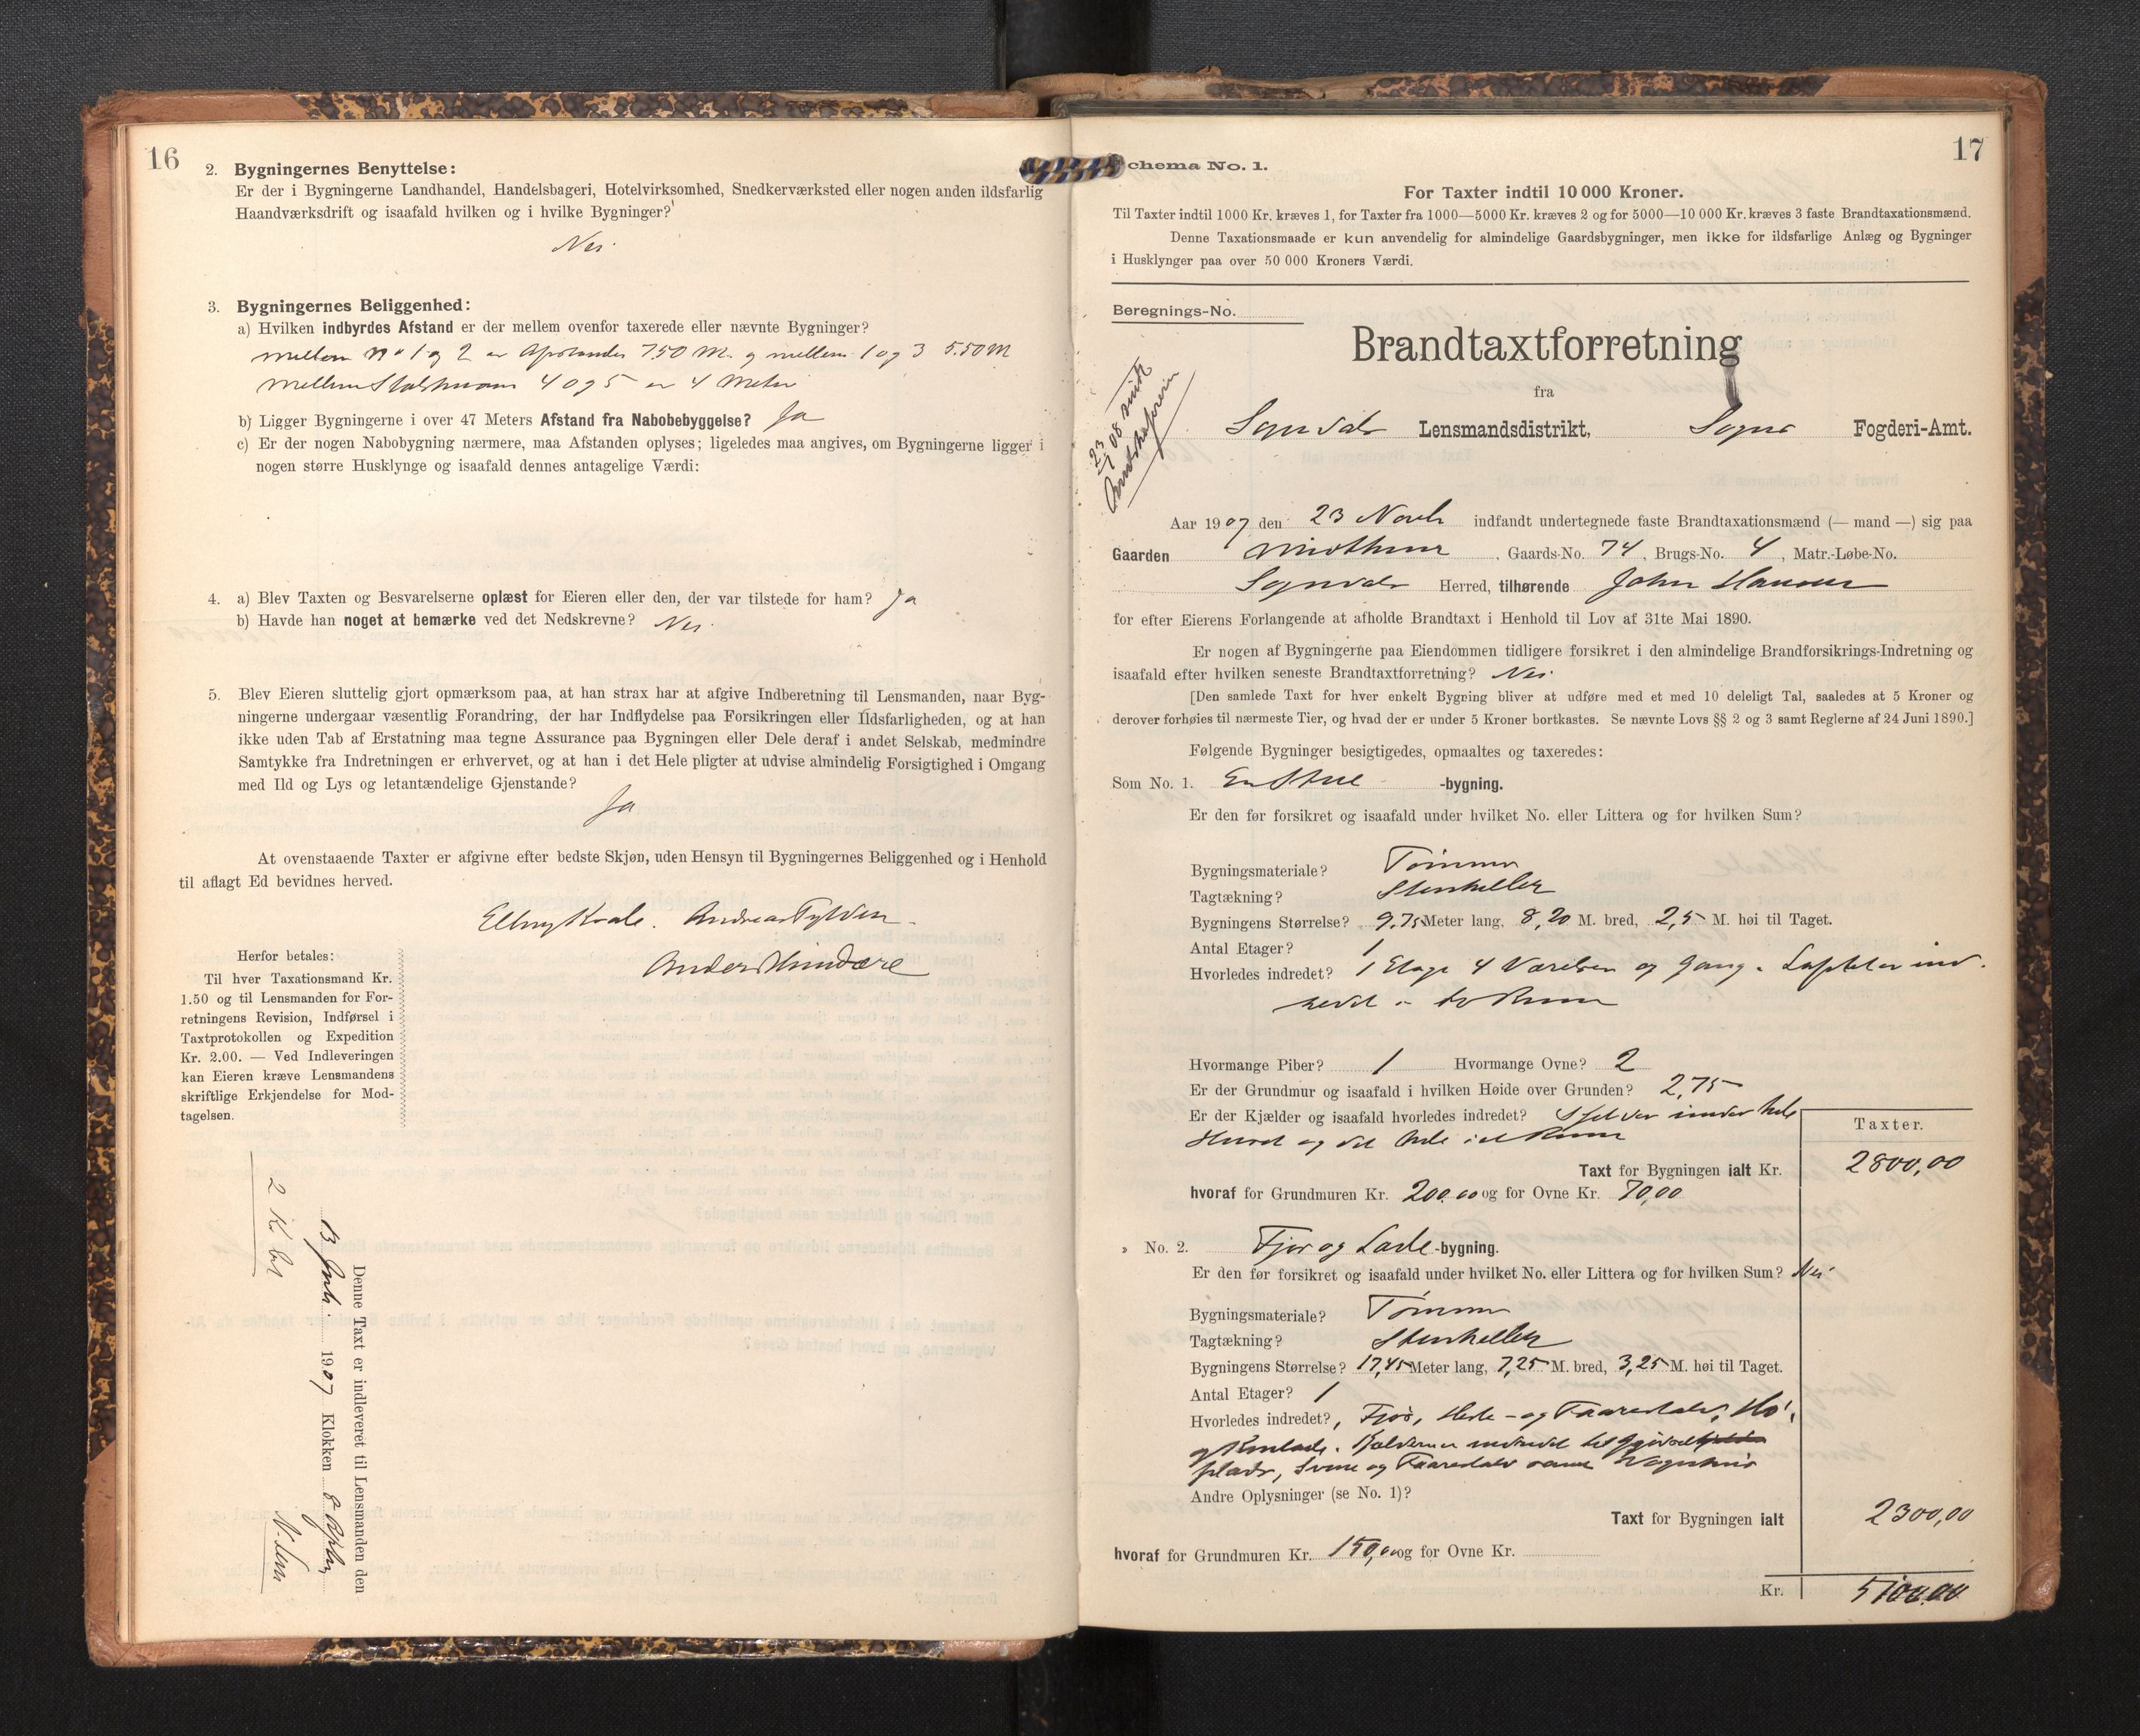 16
2. Bygningernes Benyttelse:
Er der i Bygningerne Landhandel, Handelsbageri, Hotelvirksomhed, Snedkerværksted eller nogen anden ildsfarlig
Haandværksdrift og isaafald hvilken og i hvilke Bygninger?
Nei.
3. Bygningernes Beliggenhed:
a) Hvilken indbyrdes Afstand er der mellem ovenfor taxerede eller nævnte Bygninger?
mellem No 1 og 2 er Afstanden 750 M. og mellem 1 og 3 5.50 M
mellem 4 og 5 er 4 Meter
b) Ligger Bygningerne i over 47 Meters Afstand fra Nabobebyggelse? Ja
c) Er der nogen Nabobygning nærmere, maa Afstanden oplyses; ligeledes maa angives, om Bygningerne ligger i
nogen større Husklynge og isaafald dennes antagelige Værdi:
4. a) Blev Taxten og Besvarelserne oplæst for Eieren eller den, der var tilstede for ham? Ja
b) Havde han noget at bemærke ved det Nedskrevne? Nei.
5. Blev Eieren sluttelig gjort opmærksom paa, at han strax har at afgive Indberetning til Lensmanden, naar Byg-
ningerne undergaar væsentlig Forandring, der har Indflydelse paa Forsikringen eller Ildsfarligheden, og at han
ikke uden Tab af Erstatning maa tegne Assurance paa Bygningen eller Dele deraf i andet Selskab, medmindre
Samtykke fra Indretningen er erhvervet, og at han i det Hele pligter at udvise almindelig Forsigtighed i Omgang
med Ild og Lys og letantændelige Gjenstande?
Ja
At ovenstaaende Taxter er afgivne efter bedste Skjøn, uden Hensyn til Bygningernes Beliggenhed og i Henhold
til aflagt Ed bevidnes herved.
Elling Kvale. Andreas Tylden.
Anders
Herfor betales:
Til hver Taxationsmand Kr.
1.50 og til Lensmanden for For-
retningens Revision, Indførsel i
Taxtprotokollen og Expedition
Kr. 2.00. — Ved Indleveringen
kan Eieren kræve Lensmandens
skriftlige Erkjendelse for Mod-
tagelsen.
Denne Taxt er indleveret til Lensmanden den
13 1907 Klokken 8
2 K bt
17
chema No. 1.
For Taxter indtil 10 000 Kroner.
Til Taxter indtil 1000 Kr. kræves 1, for Taxter fra 1000—5000 Kr. kræves 2 og for 5000—10 000 Kr. kræves 3 faste Brandtaxationsmænd.
Denne Taxationsmaade er kun anvendelig for almindelige Gaardsbygninger, men ikke for ildsfarlige Anlæg og Bygninger
i Husklynger paa over 50 000 Kroners Værdi.
Beregnings-No.
Brandtaxtforretning
fra
Sogndals Lensmandsdistrikt, Sogns Fogderi-Amt.
Aar 1907 den 23 Novbr indfandt undertegnede faste Brandtaxationsmænd (— mand —) sig paa
Gaarden , Gaards-No. 74, Brugs-No. 4, Matr.-Løbe-No.
Sogndals Herred, tilhørende John Hansen
for efter Eierens Forlangende at afholde Brandtaxt i Henhold til Lov af 31te Mai 1890.
Er nogen af Bygningerne paa Eiendommen tidligere forsikret i den almindelige Brandforsikrings-Indretning og
isaafald efter hvilken seneste Brandtaxtforretning? Nei.
[Den samlede Taxt for hver enkelt Bygning bliver at udføre med et med 10 deleligt Tal, saaledes at 5 Kroner og
derover forhøies til nærmeste Tier, og hvad der er under 5 Kroner bortkastes. Se nævnte Lovs §§ 2 og 3 samt Reglerne af 24 Juni 1890.]
Følgende Bygninger besigtigedes, opmaaltes og taxeredes:
Som No. 1. En Stue -bygning.
Er den før forsikret og isaafald under hvilket No. eller Littera og for hvilken Sum?
Bygningsmateriale? Tømmer
Tagtækning? Stenheller
Bygningens Størrelse? 9,75 Meter lang, 8,20 M. bred, 2,5 M. høi til Taget.
Antal Etager? 1
Hvorledes indredet? 1 Etage 4 Værelser og Gang. Loftet er ind-
redet i to Rum
Hvormange Piber? 1 Hvormange Ovne? 2
Er der Grundmur og isaafald i hvilken Høide over Grunden? 2,75
Er der Kjælder og isaafald hvorledes indredet? Kjelder under hele
Huset og det hele i et Rum
Taxter.
Taxt for Bygningen ialt Kr. 2800,00
hvoraf for Grundmuren Kr. 200.00 og for Ovne Kr. 70,00
» No. 2. Fjøs og Lade -bygning.
Er den før forsikret og isaafald under hvilket No. eller Littera og for hvilken Sum? Nei
Bygningsmateriale? Tømmer
Tagtækning? Stenheller
Bygningens Størrelse? 17,45 Meter lang, 7,25 M. bred, 3,25 M. høi til Taget.
Antal Etager? 1
Hvorledes indredet? Fjøs, Heste- og Faarestald, Hø-
og Kornlade. Kjelderen indredet til
plads, Svine og Faarestald samt Vognskur
Andre Oplysninger (se No. 1)?
Taxt for Bygningen ialt 2300,00
hvoraf for Grundmuren Kr. 150,00 og for Ovne Kr.
Kr. 5100.00